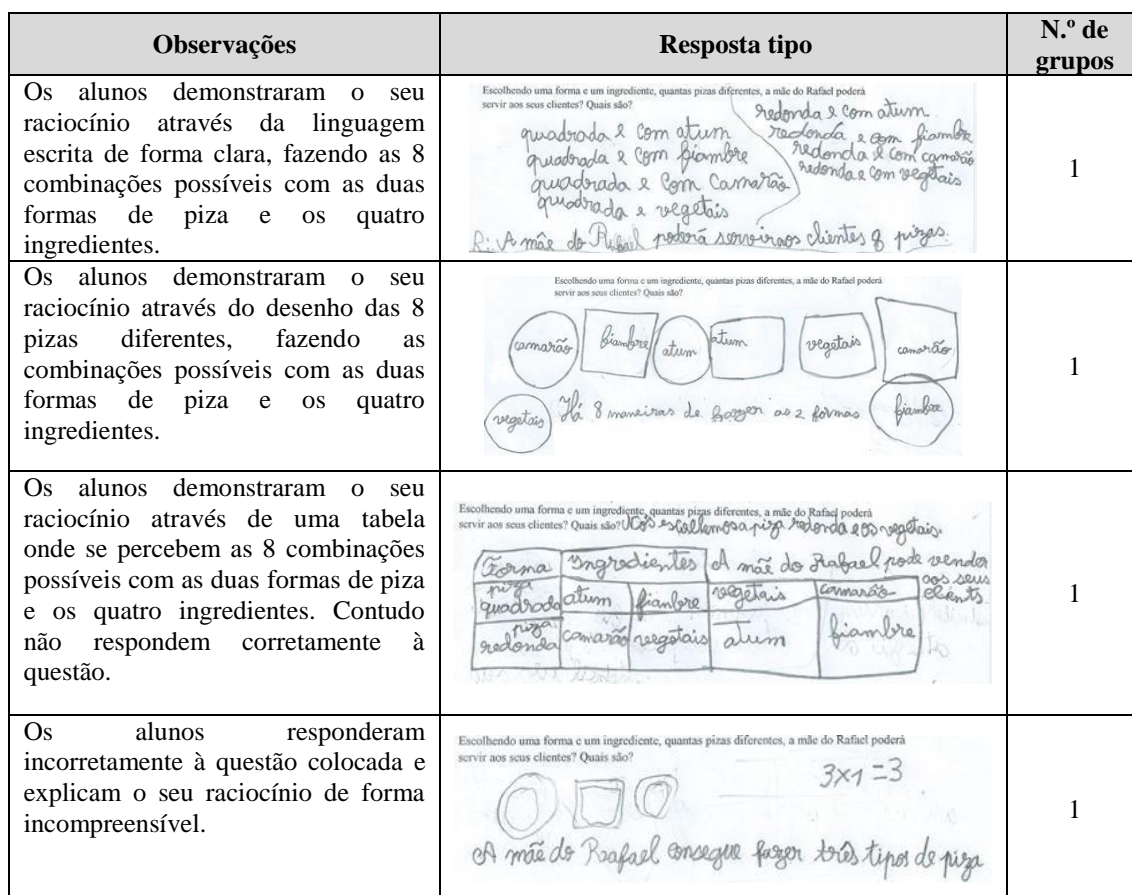 Observações
Resposta tipo
N.º de
grupos
Os alunos demonstraram o seu
raciocínio através da linguagem
escrita de forma clara, fazendo as 8
combinações possíveis com as duas
formas de piza e os quatro
ingredientes.
Escolhendo uma forma e um ingrediente, quantas pizas diferentes, a mãe do Rafael poderá
servir aos seus clientes? Quais são?
quadrada e com atum
quadrada e com fiambre
quadrada e com Camarão
quadrada e vegetais
redonda e com atum
redonda e com fiambre
redonda e com camarão
redonda e com vegetais
R: A mãe do Rafael poderá servir aos clientes 8 pizas.
1
Os alunos demonstraram o seu
raciocínio através do desenho das 8
pizas diferentes, fazendo as
combinações possíveis com as duas
formas de piza e os quatro
ingredientes.
Escolhendo uma forma e um ingrediente, quantas pizas diferentes, a mãe do Rafael poderá
servir aos seus clientes? Quais são?
camarão fiambre atum atum vegetais camarão
vegetais Há 8 maneiras de fazer as 2 formas fiambre
1
Os alunos demonstraram o seu
raciocínio através de uma tabela
onde se percebem as 8 combinações
possíveis com as duas formas de piza
e os quatro ingredientes. Contudo
não respondem corretamente à
questão.
Escolhendo uma forma e um ingrediente, quantas pizas diferentes, a mãe do Rafael poderá
servir aos seus clientes? Quais são? Nós escolhemos a piza redonda e os vegetais.
Forma Ingredientes A mãe do Rafael pode vender
aos seus
clients.
piza
quadrada atum fiambre vegetais camarão
piza
redonda camarão vegetais atum fiambre
1
Os alunos responderam
incorretamente à questão colocada e
explicam o seu raciocínio de forma
incompreensível.
Escolhendo uma forma e um ingrediente, quantas pizas diferentes, a mãe do Rafael poderá
servir aos seus clientes? Quais são?
3x1=3
A mãe do Raafael consegue fazer três tipos de piza
1